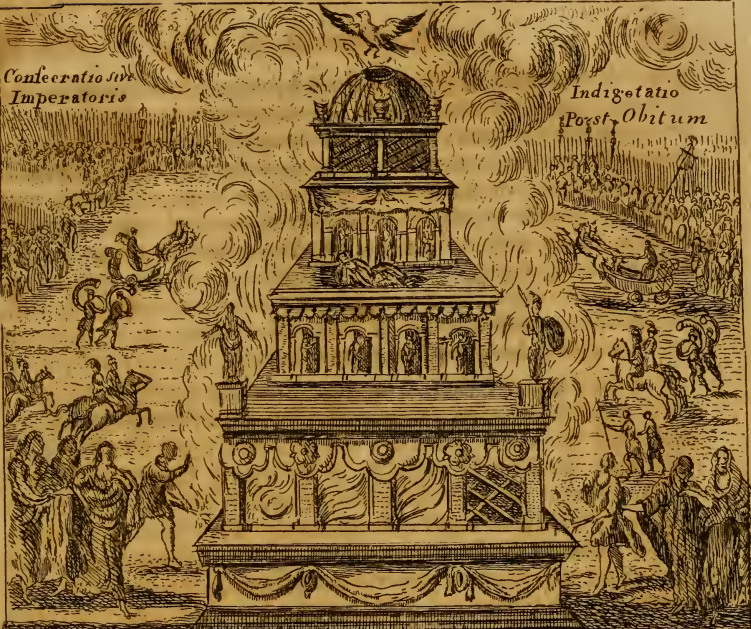 Consecratio sive
Imperatoris
Indigetatio
Post Obitum